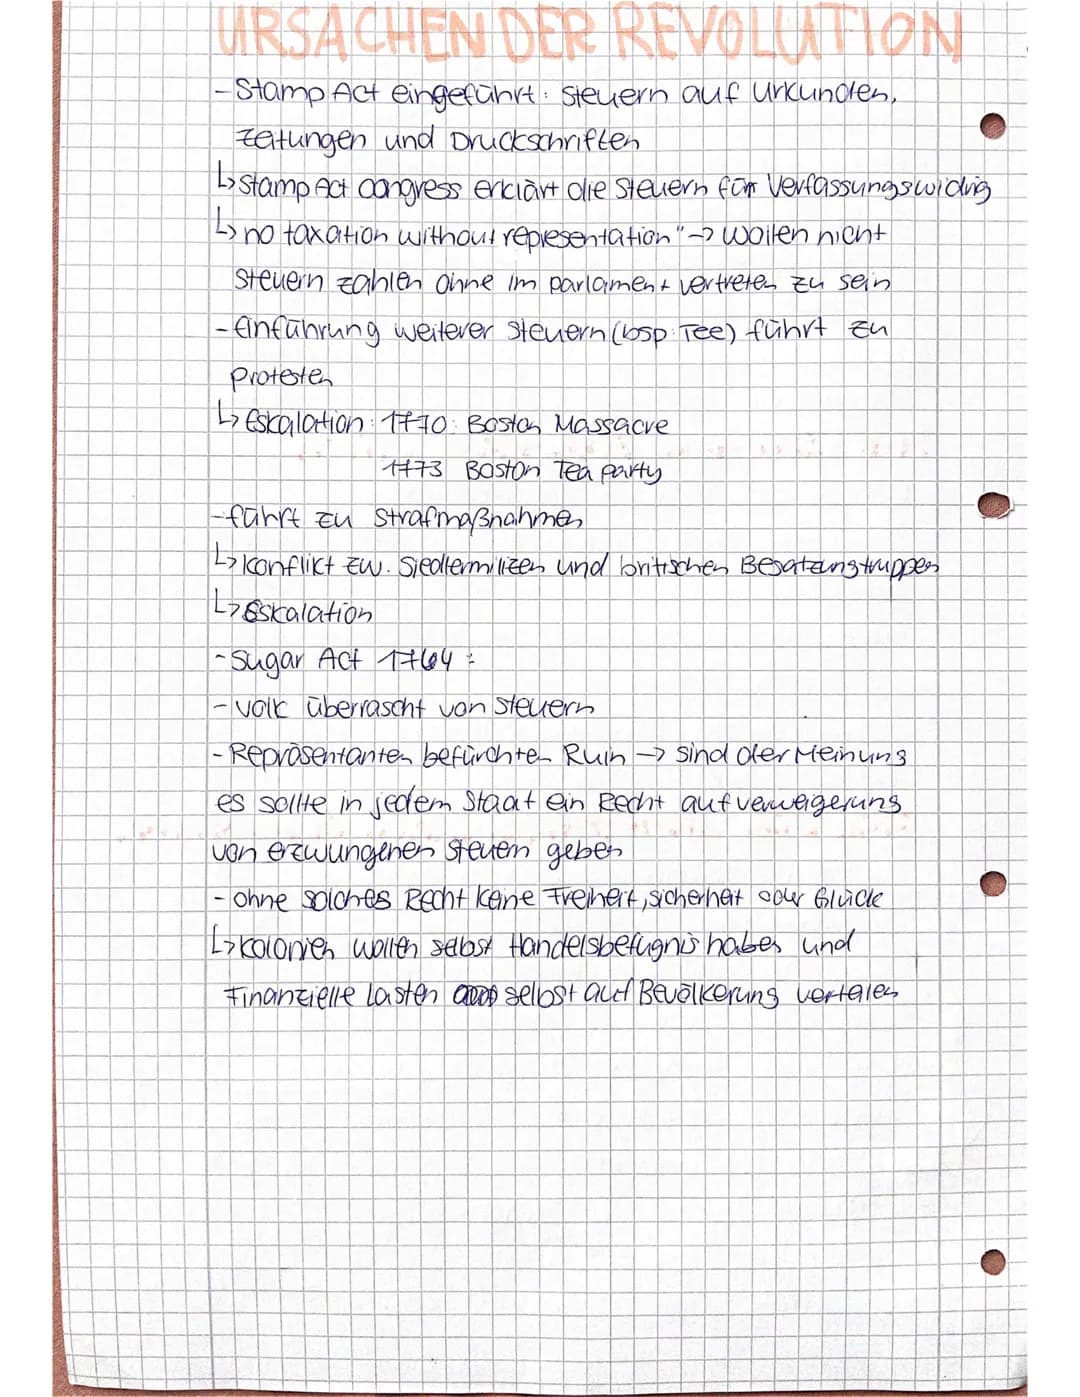 URSACHEN DER REVOLUTION
- Stamp Act eingeführt: Steuern auf Urkunden,
Zeitungen und Druckschriften
↳ Stamp Act Congress erklärt die Steuern für Verfassungswidrig
↳ no taxation without representation" → wollen nicht
Steuern zahlen ohne im parlament vertreten zu sein
- Einführung weiterer Steuern (bsp: Tee) führt zu
Protesten
↳ Eskalation: 1770: Boston Massacre
1773 Boston Tea party
- führt zu Strafmaßnahmen
↳ Konflikt zw. Siedlermilizen und britischen Besatzungtruppen
↳ Eskalation
- Sugar Act 1764:
- Volk überrascht von Steuern
- Repräsentanten befürchten Ruin → sind der Meinung
es sollte in jedem Staat ein Recht auf verweigerung
von erzwungenen Steuern geben
- ohne solches Recht keine Freiheit, sicherheit oder Glück
↳ Kolonien wollen selbst Handelsbefugnis haben und
Finanzielle Lasten selbst auf Bevölkerung verteilen